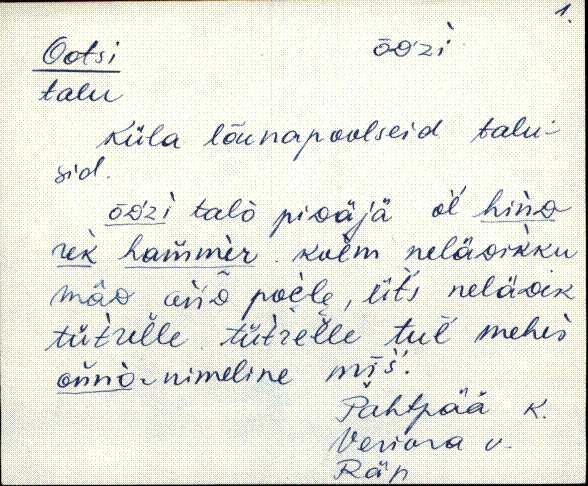 1.
Ootsi ōᴅ́zì
talu
Küla lõunapoolseid talu-
sid.
ōᴅ́zì talò piᴅäjä ol´ hinᴅ
rèk hammèr. kolm neläᴅikku
mäᴅ poèle, üt´s neläᴅik
tüt́relle. tüt́relle tul´ mehès
nimeline mīś.
Pahtpää k.
Veriora v.
Räp